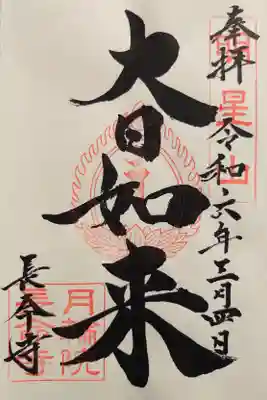 奉拝
明星山
令和六年三月四日
大日如来
長命寺
月輪院
長命寺